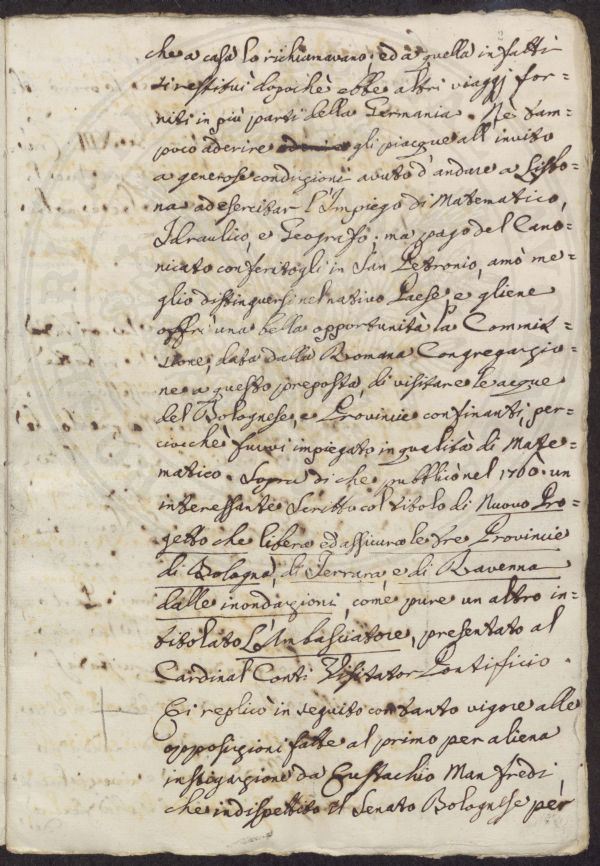 che a casa lo richiamavano; ed a quella in fatti
si restituì dopochè ebbe altri viaggi for=
niti in più parti della Germania. Nè tam=
poco aderire gli piacque all'invito
a generose condizioni avuto d'andare a Lisbo=
na ad esercitar l'Impiego di Matematico,
Idraulico, e Geografo; ma pago del Cano=
nicato conferitogli in San Petronio, amò me=
glio distinguersi nel nativo Paese e gliene
offrì una bella opportunità la Commis=
sione, data dalla Romana Congregazio=
ne a questo preposta, di visitare le acque
del Bolognese, e Provincie confinanti, per=
ciocchè fuvvi impiegato in qualità di Mate=
matico. Sopra di che pubblicò nel 1760. un
interessante Scritto col titolo di Nuovo Pro=
getto che libera ed assicura le tre Provincie
di Bologna, di Ferrara, e di Ravenna
dalle inondazioni, come pure un altro in=
titolato L'Ambasciatore, presentato al
Cardinal Conti Visitator Pontificio.
Ei replicò in seguito con tanto vigore alle
opposizioni fatte al primo per aliena
instigazione da Eustachio Manfredi,
che indispettito il Senato Bolognese per